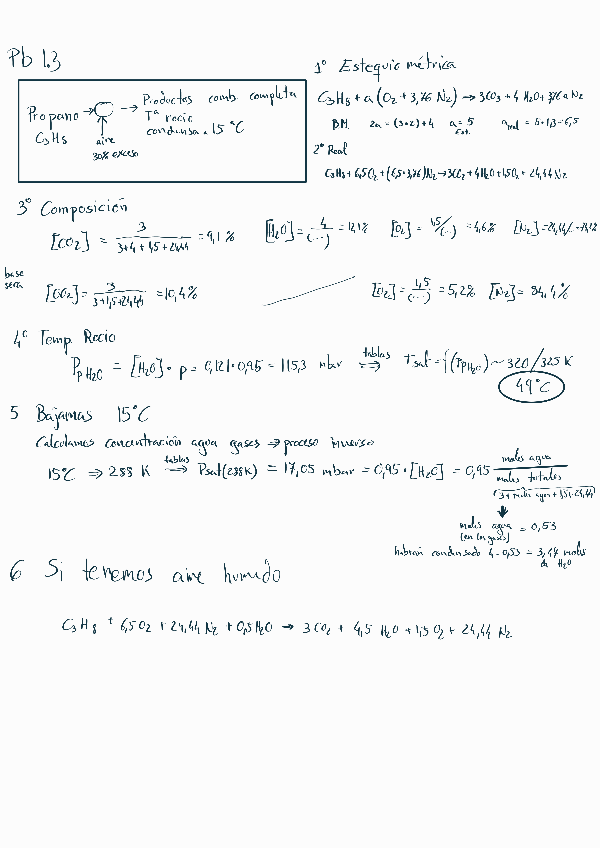 Pb 1.3
Propano → → Productos comb. completa
C3H8 aire Tª rocio
30% exceso condensa. 15 °C
1º Estequiométrica
C3H8 + a (O2 + 3,76 N2) → 3CO2 + 4 H2O + 3,76 a N2
BM. 2a = (3·2) + 4 a = 5 est. a real = 5·1,3 = 6,5
2º Real
C3H8 + 6,5O2 + (6,5·3,76)N2 → 3CO2 + 4H2O + 1,5O2 + 24,44 N2
3º Composición
[CO2] = 3 / 3+4+1,5+24,44 = 9,1 % [H2O] = 4 / (...) = 12,1% [O2] = 1,5/(...) = 4,6% [N2] =
base seca [CO2] = 3 / 3+1,5+24,44 = 10,4% [O2] = 1,5 / (...) = 5,2% [N2] = 84,4%
4º Temp. Rocio
Pp H2O = [H2O] · p = 0,121·0,95 = 115,3 mbar tablas ⇒ Tsat = f(PpH2O) ~ 320/325 K
49°C
5 Bajamas 15°C
Calculamos concentración agua gases → proceso inverso
15°C ⇒ 288 K tablas ⇒ Psat(288K) = 17,05 mbar = 0,95·[H2O] = 0,95 moles agua / moles totales
(3 + moles agua + 1,5 + 24,44)
moles agua = 0,53
(en los gases)
habrán condensado 4 - 0,53 = 3,47 moles
de H2O
6 Si tenemos aire humido
C3H8 + 6,5O2 + 24,44 N2 + 0,5H2O → 3CO2 + 4,5 H2O + 1,5O2 + 24,44 N2